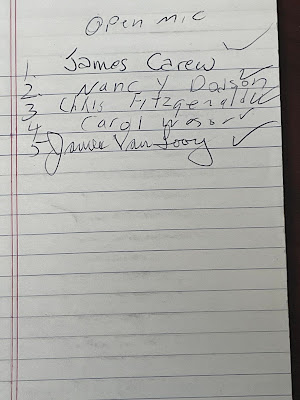 Open mic
1. James Carew ✓
2. Nancy Dodson ✓
3 Chris Fitzgerald ✓
4 Carol ✓
5 James Van Looy ✓